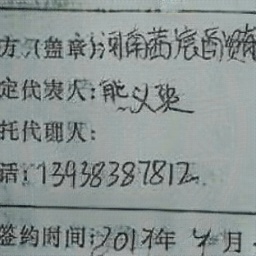 方（盖章）：河南茜宸商贸
定代表人：熊义
托代理人：
话：13938387812
签约时间：2017年 4月